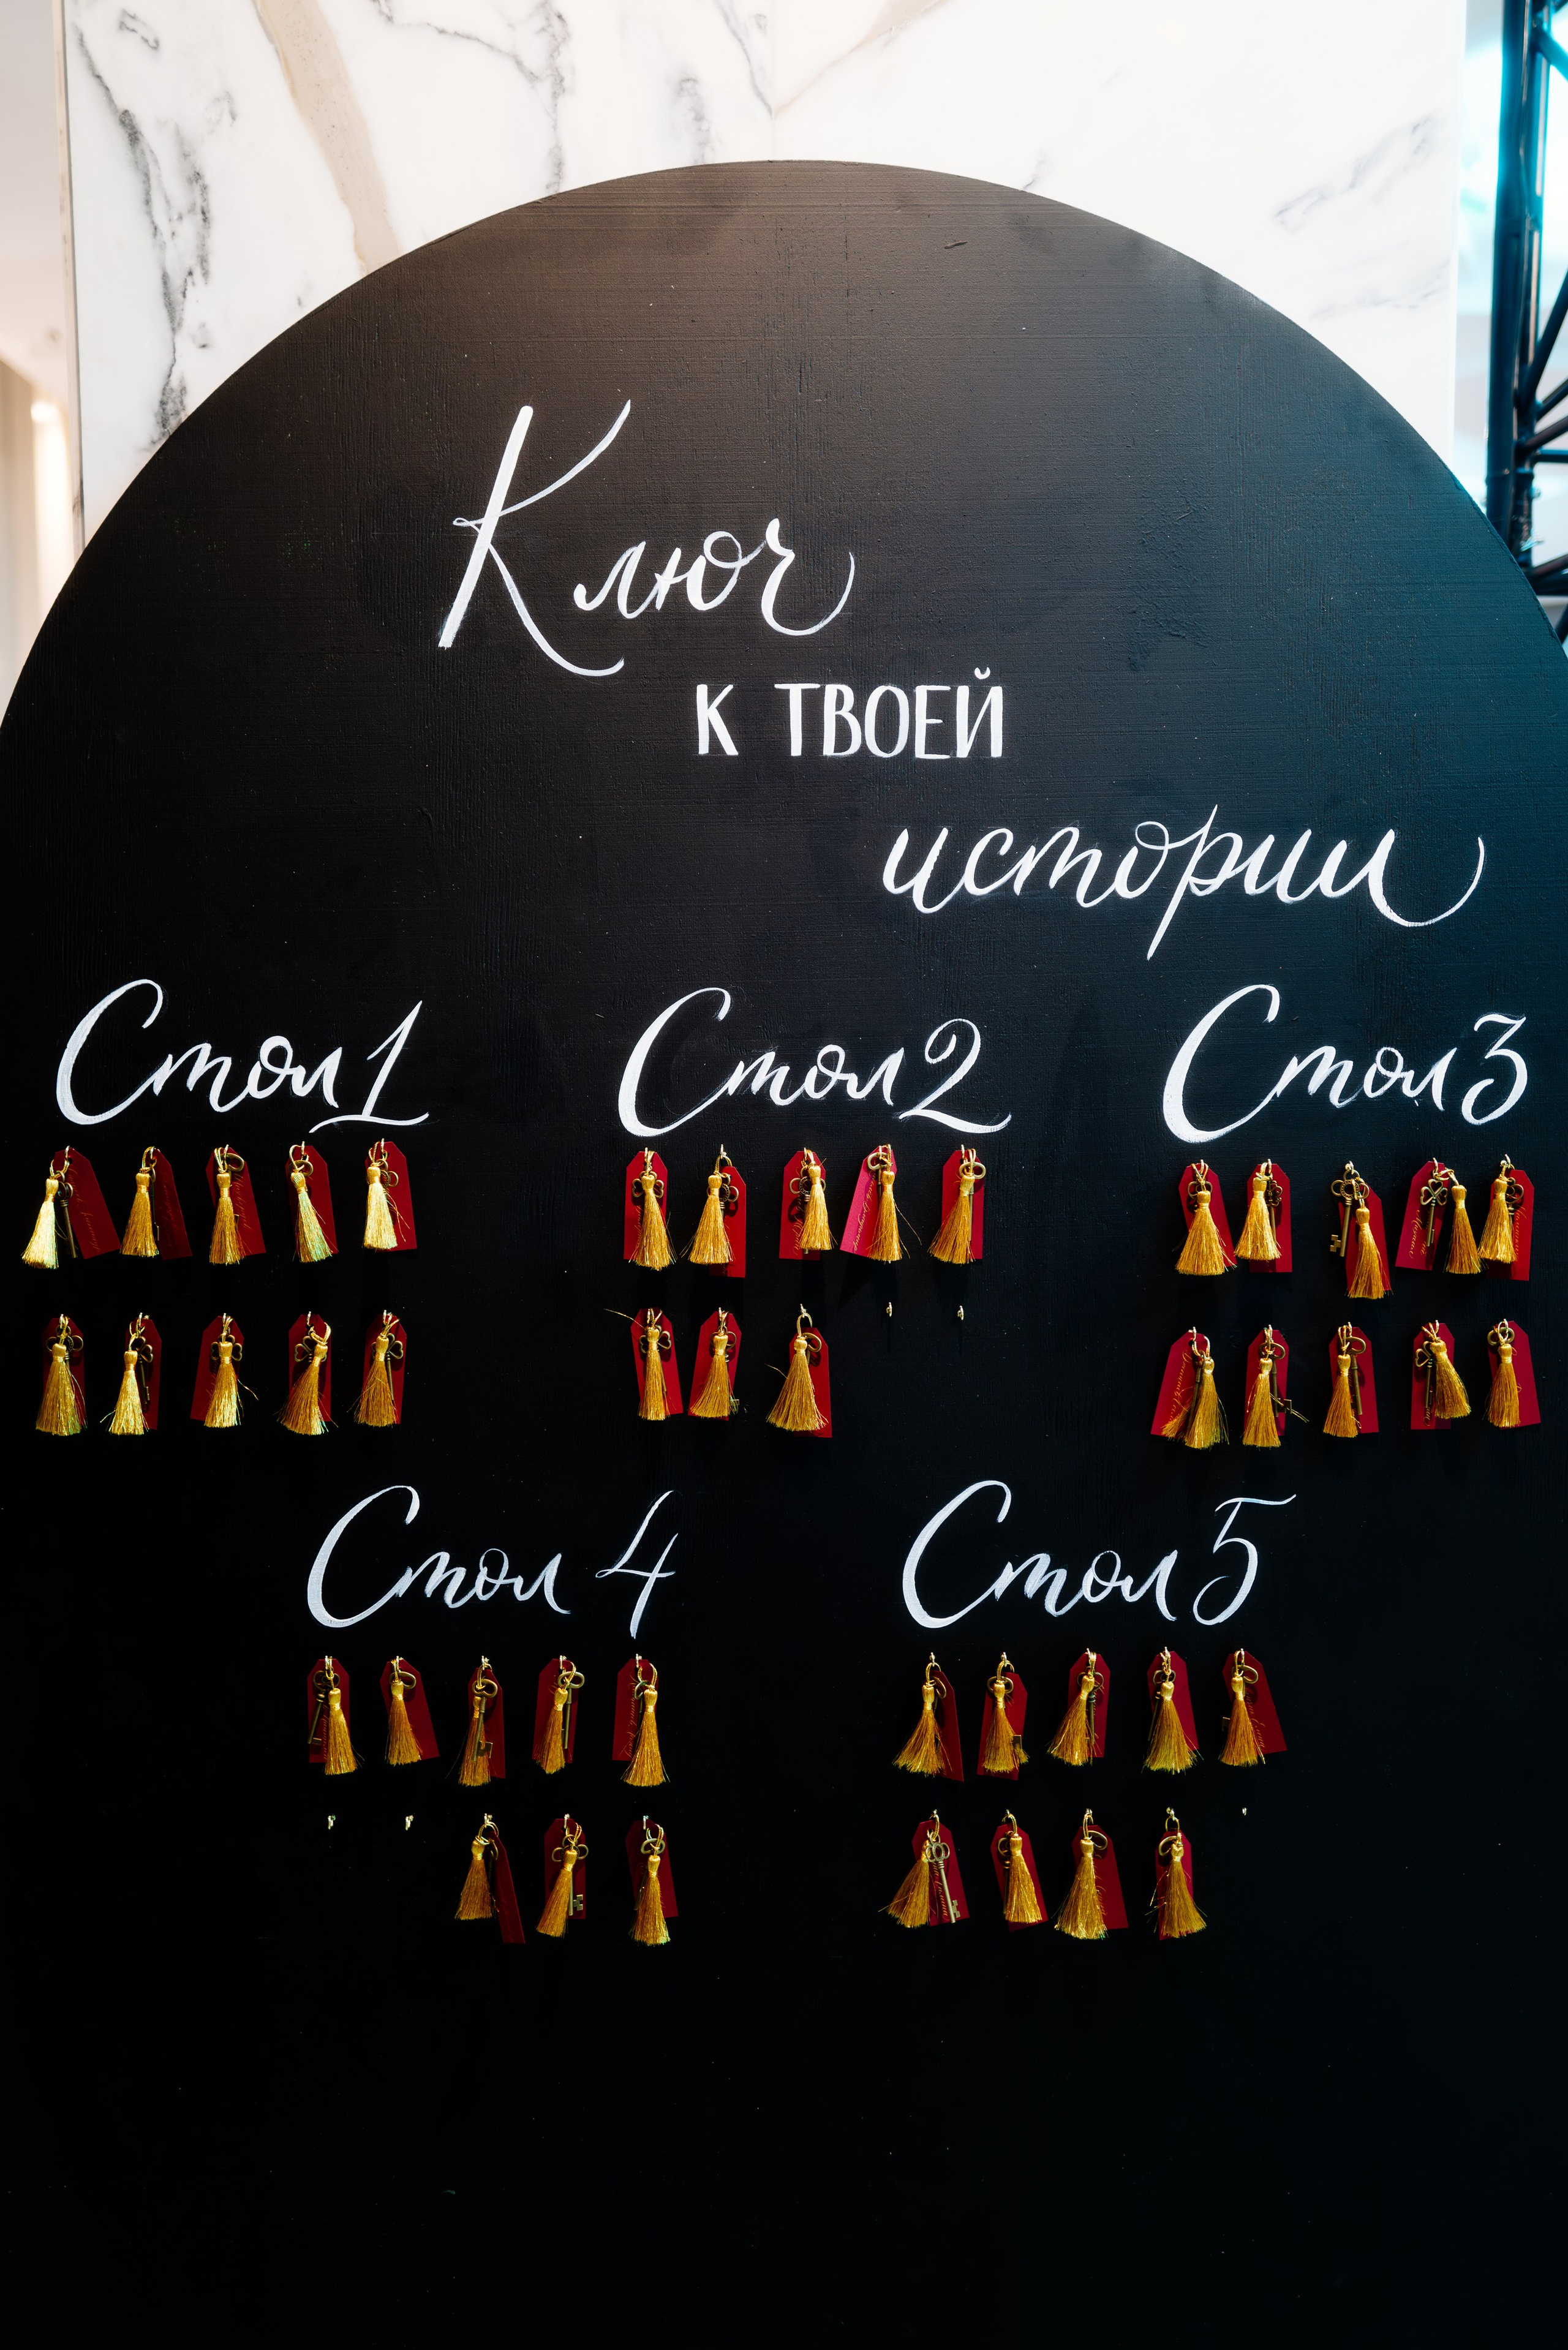 Ключ
к твоей
истории
Стол 1
Стол 2
Стол 3
Стол 4
Стол 5